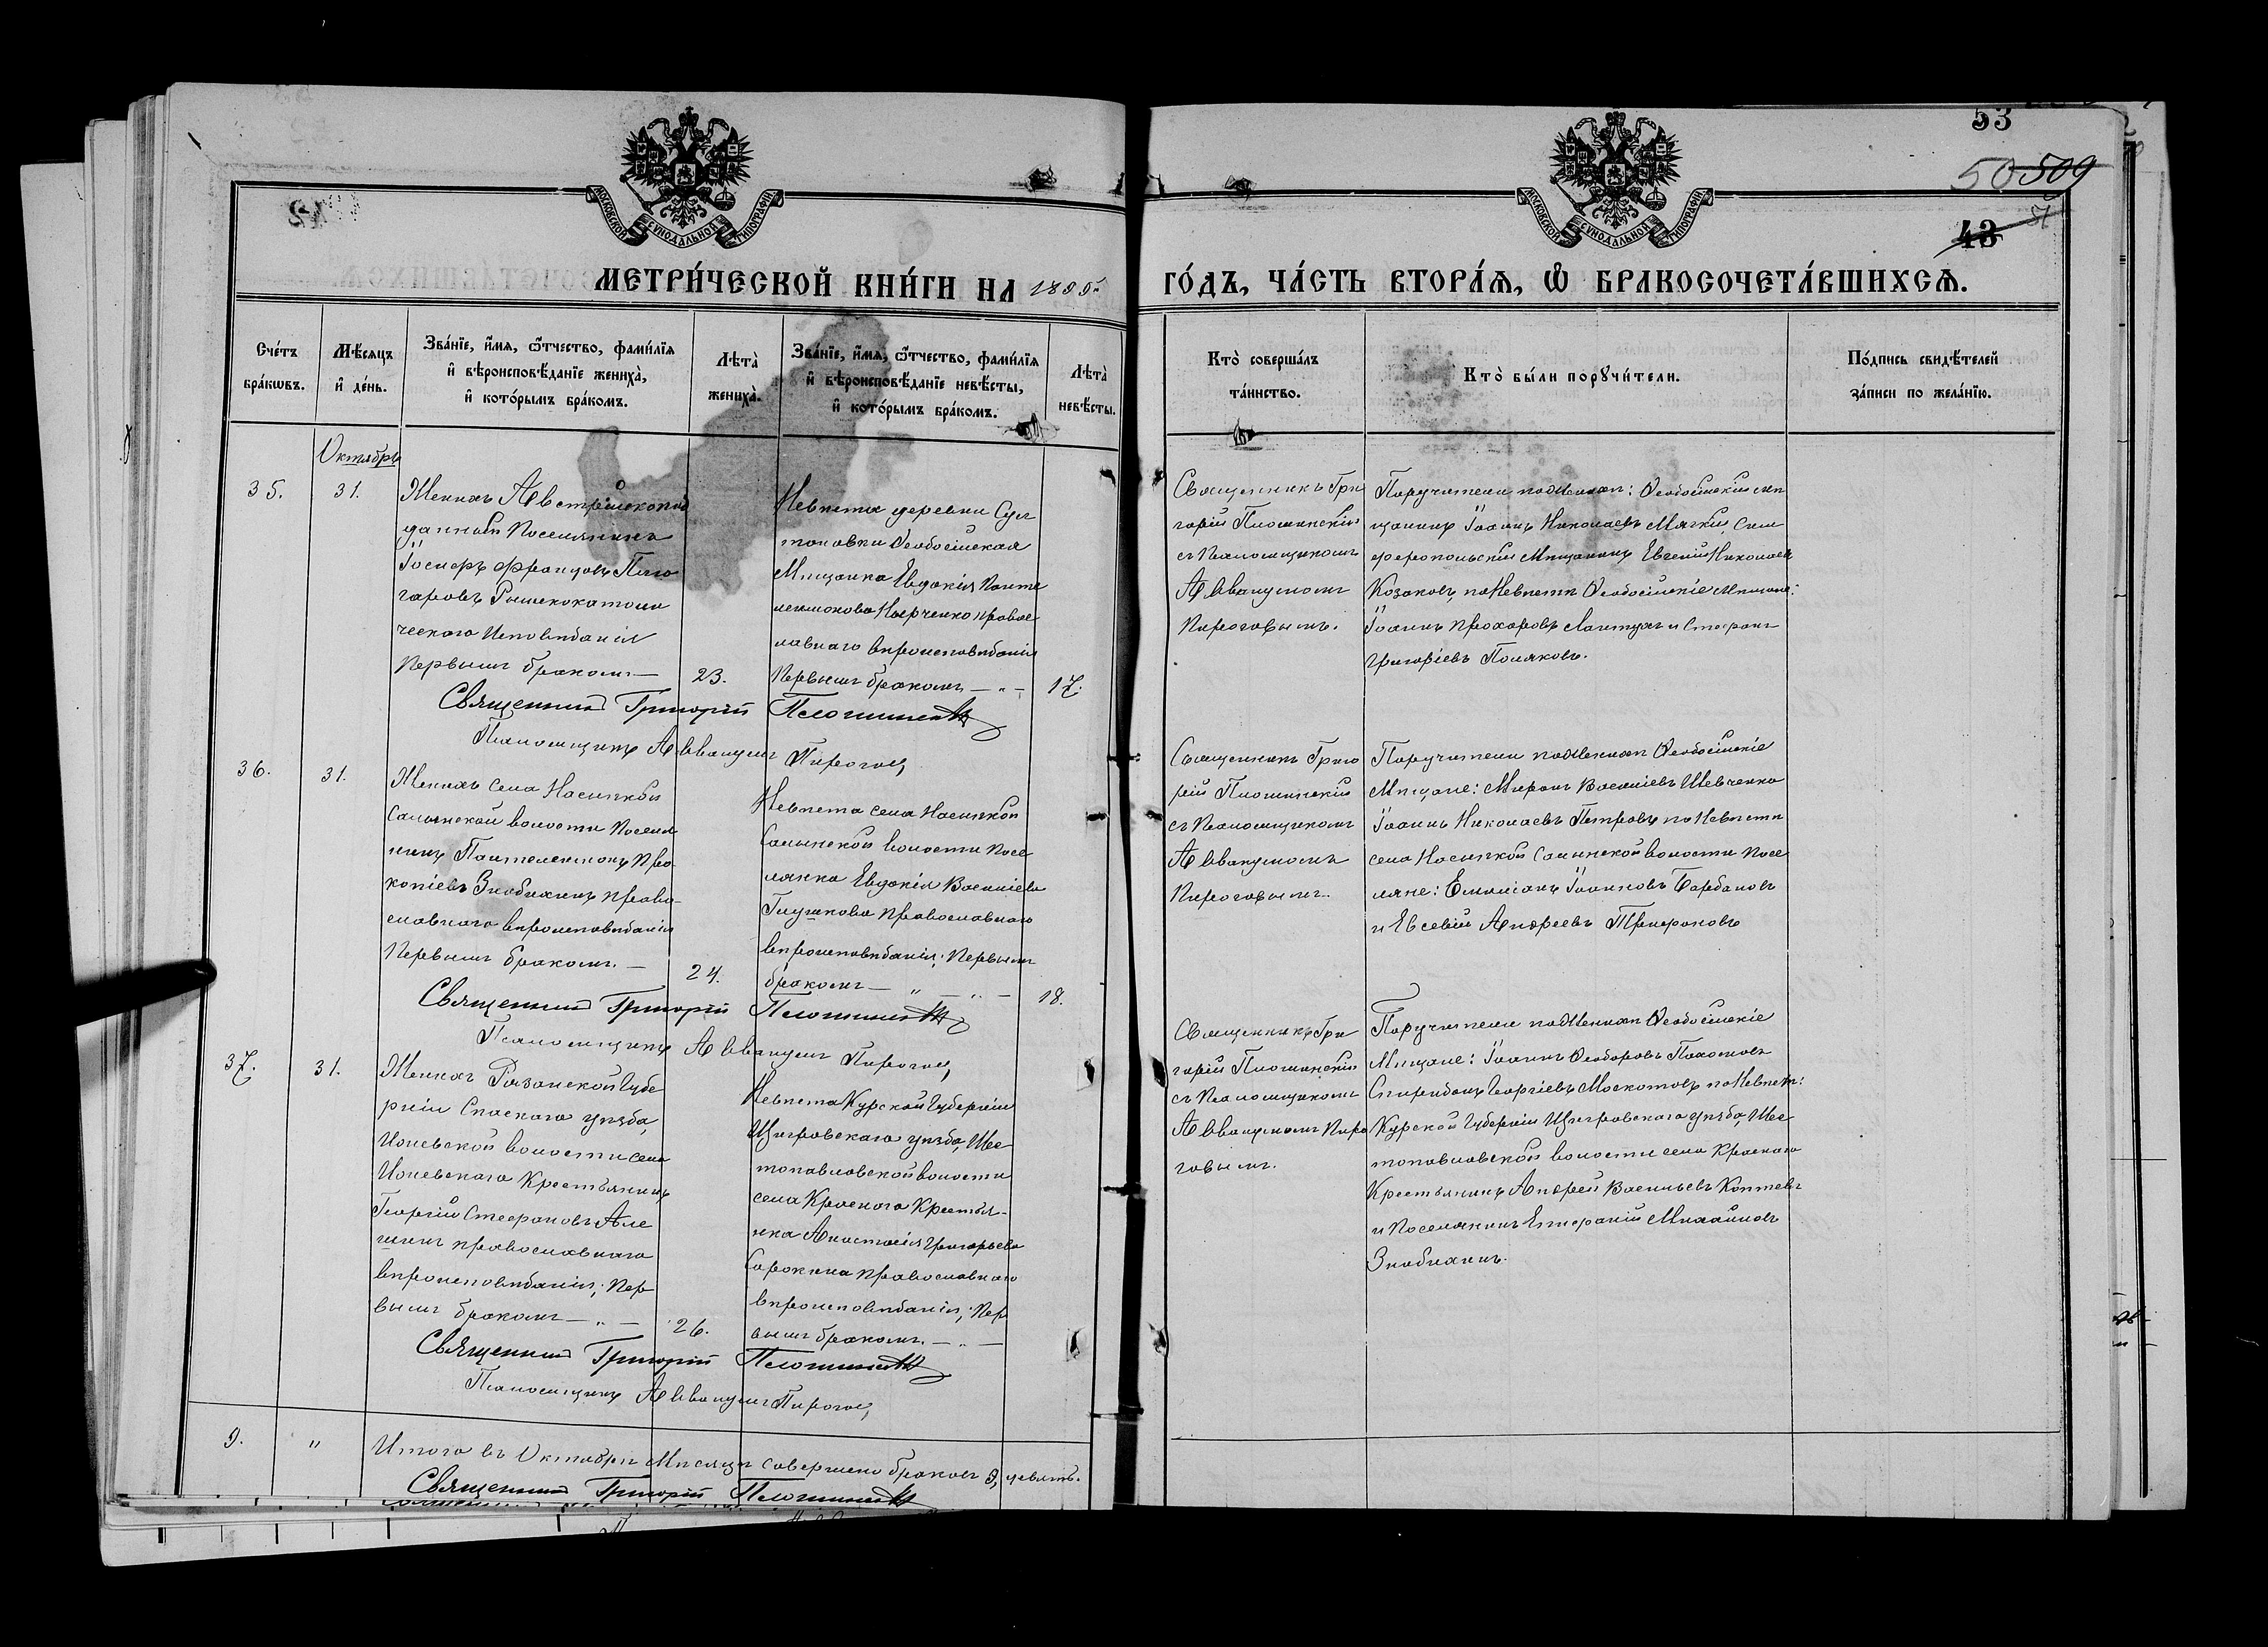 53
50 509
51
43
МОСКОВСКОЙ СѴНОДАЛЬНОЙ ТИПОГРАФІИ
МОСКОВСКОЙ СѴНОДАЛЬНОЙ ТИПОГРАФІИ
МЕТРИ́ЧЕСКОЙ КНИ́ГИ НА 1895 ГО́ДЪ, ЧА́СТЬ ВТОРА́Я, Ѡ БРАКОСОЧЕТА́ВШИХСЯ.
Сче́тъ бра́кѡвъ.
Мѣ́сяцъ и҆ де́нь.
Зва́нїе, и҆́мя, ѻ҆́тчество, фами́лїя
и҆ вѣроисповѣ́данїе жениха̀,
и҆ кото́рымъ бра́комъ.
Лѣта̀ жениха̀.
Зва́нїе, и҆́мя, ѻ҆́тчество, фами́лїя
и҆ вѣроисповѣ́данїе невѣ́сты,
и҆ кото́рымъ бра́комъ.
Лѣта̀ невѣ́сты.
Кто̀ соверша́лъ
та́инство.
Кто̀ бы́ли порꙋчи́тели.
По́дпись свидѣ́телей
за́писи по жела́нїю.
Октябрь
35.
31.
Женихъ Австрійскопод
данный Поселянинъ
Іосифъ Францовъ
Римскокатоли
ческаго Исповѣданія
Первымъ бракомъ —
23.
Невѣста деревни Сул
тановки Ѳеодосійская
Мѣщанка Евдокія Панте
леимонова Харченко правос
лавнаго вѣроисповѣданія
Первымъ бракомъ — „ —
17.
Священникъ Григорій
Плотинскій
съ Псаломщикомъ
Аввакумомъ
Пироговымъ.
Поручители по Женихѣ: Ѳеодосійскій мѣ
щанинъ Іоаннъ Николаевъ Мягкій, Сим
феропольскій Мѣщанинъ Евгеній Николаевъ
Козаковъ, по Невѣстѣ Ѳеодосійскіе Мѣщане:
Іоаннъ Прохоровъ и Стефанъ
Григоріевъ Поляковъ.
Священникъ Григорій Плотинскій
Псаломщикъ Аввакумъ Пироговъ
36.
31.
Женихъ села Насыпкой
Салынской волости Поселя
нинъ Пантелеимонъ Про
копіевъ Знобихинъ право
славнаго вѣроисповѣданія
Первымъ бракомъ. —
24.
Невѣста села Насыпкой
Салынской волости Посе
лянка Евдокія Василіева
Глушкова православнаго
вѣроисповѣданія; Первымъ
бракомъ — „ — „ —
18.
Священникъ Григо
рій Плотинскій
съ Псаломщикомъ
Аввакумомъ
Пироговымъ.
Поручители по Женихѣ Ѳеодосійскіе
Мѣщане: Миронъ Василіевъ Шевченко
Іоаннъ Николаевъ Петровъ по Невѣстѣ
села Насыпкой Салынской волости Посе
ляне: Емиліанъ Іоанновъ Барбановъ
и Евсевій Андреевъ Трифоновъ
Священникъ Григорій Плотинскій
Псаломщикъ Аввакумъ Пироговъ
37.
31.
Женихъ Рязанской Губе
рніи Спаскаго уѣзда,
Ижевской волости села
Ижевскаго Крестьянинъ
Георгій Стефановъ Але
шинъ православнаго
вѣроисповѣданія; Пер
вымъ бракомъ — „ —
26.
Невѣста Курской Губерніи
Щигровскаго уѣзда, Шес
топавловской волости
села Краснаго Крестья-
нка Анастасія Григорьева
Сорокина православнаго
вѣроисповѣданія; Пер
вымъ бракомъ. — „ —
Священникъ Гри
горій Плотинскій
съ Псаломщикомъ
Аввакумомъ Пиро
говымъ.
Поручители по Женихѣ Ѳеодосійскіе
Мѣщане: Іоаннъ Ѳеодоровъ Пахомовъ
Спиридонъ Георгіевъ Москотовъ по Невѣстѣ:
Курской Губерніи Щигровскаго уѣзда, Шес
топавловской волости села Краснаго
Крестьянинъ Андрей Васильевъ Коптевъ
и Поселянинъ Епифаній Михайловъ
Знобихинъ.
Священникъ Григорій Плотинскій
Псаломщикъ Аввакумъ Пироговъ
9.
„
Итого въ Октябрѣ Мѣсяцѣ совершено браковъ 9, девять.
Священникъ Григорій Плотинскій